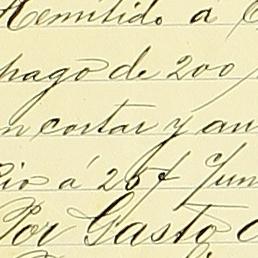 Remitido a
pago de 200
n cortar y au
cio á 25 f Jun
Por Gasto